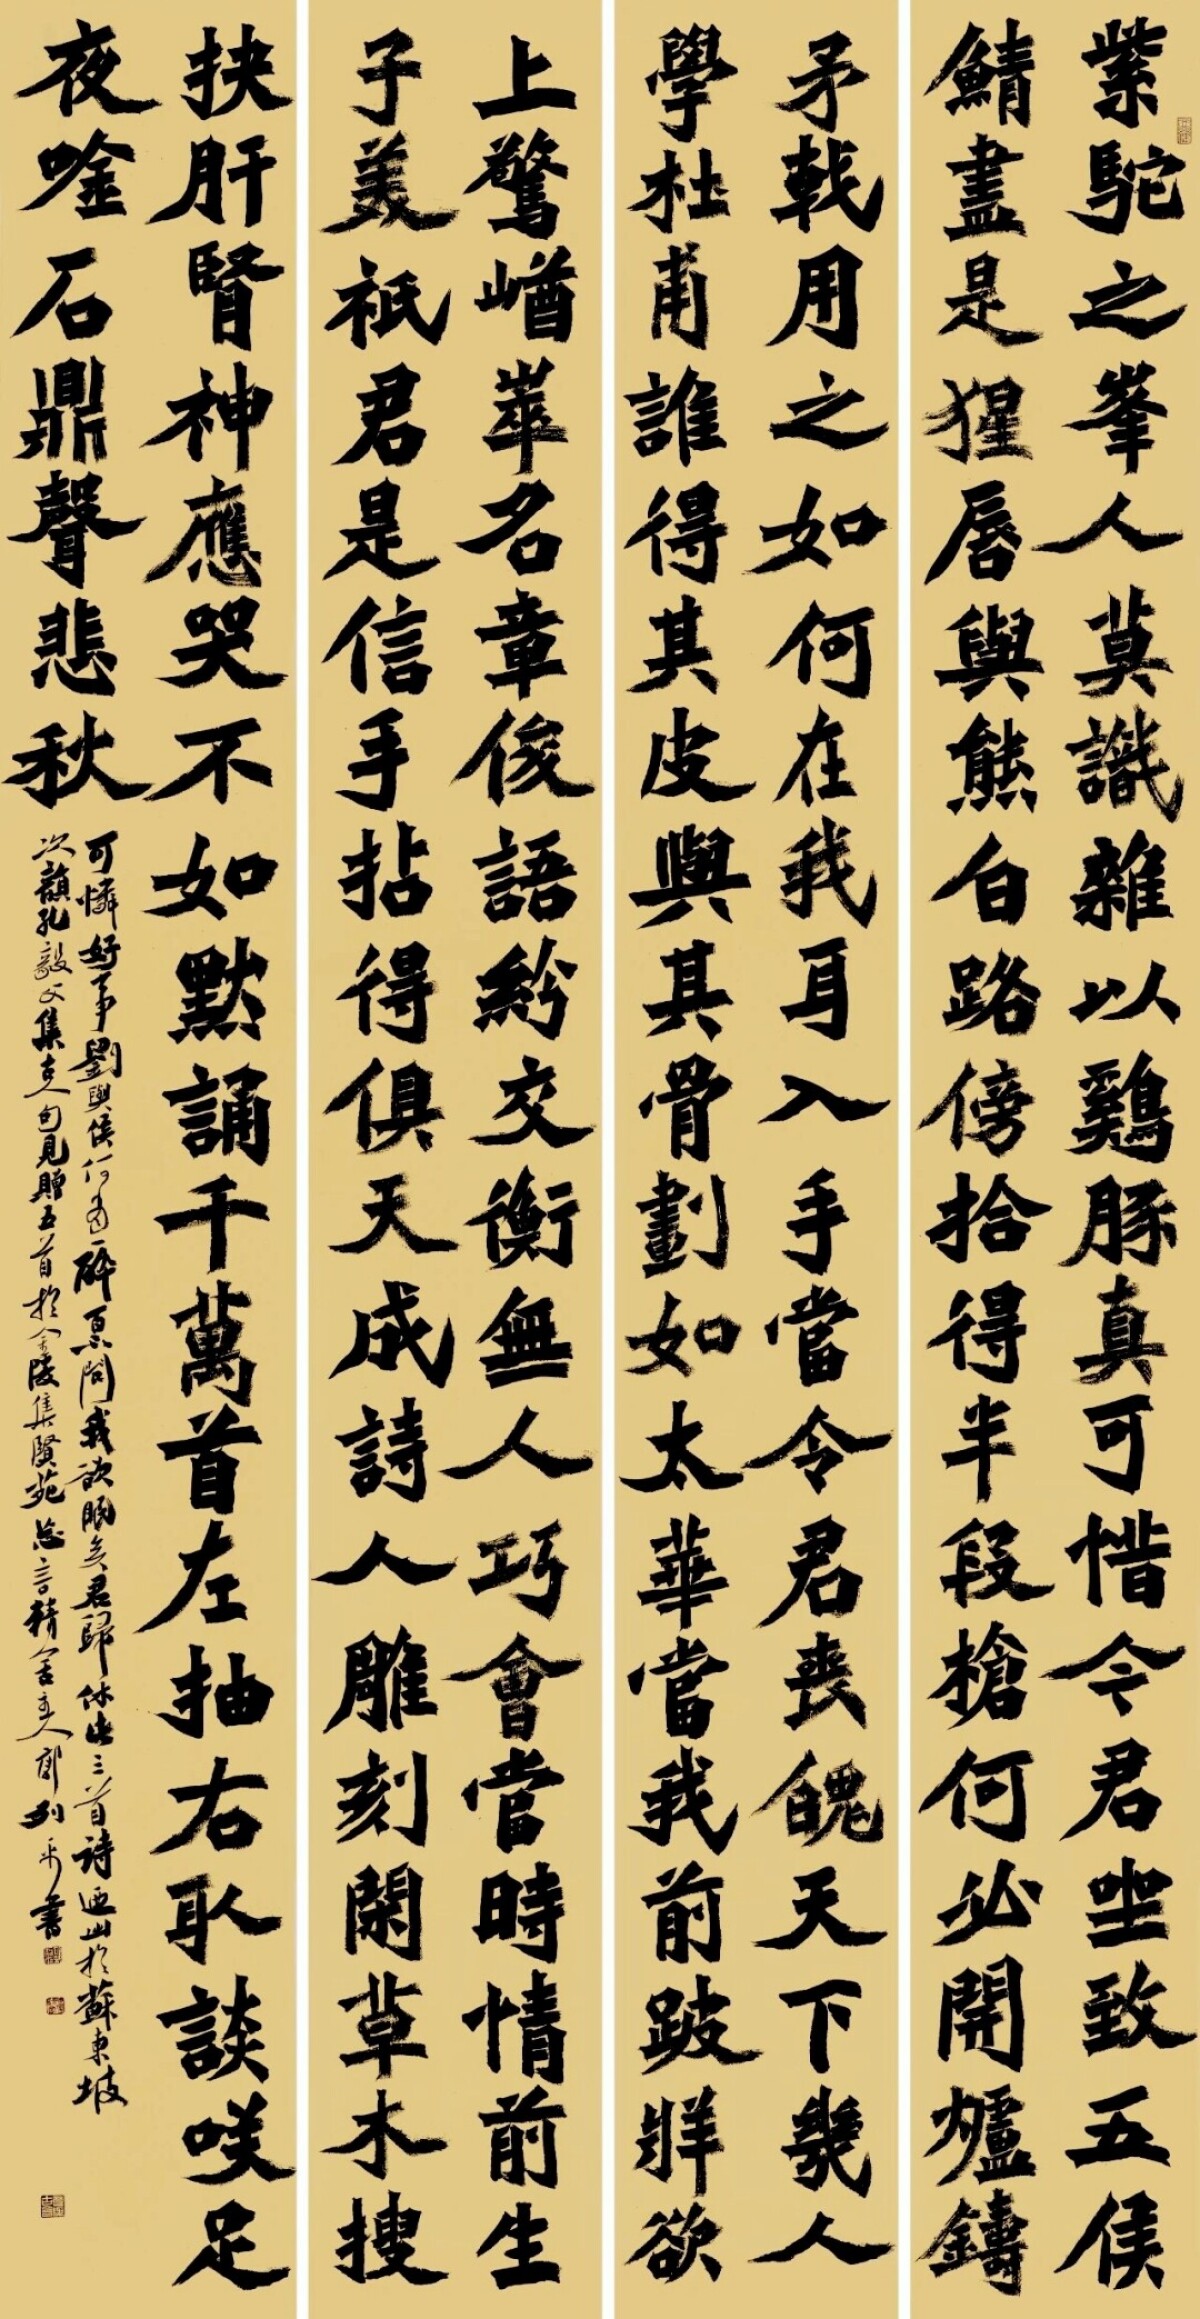 紫駝之峯人莫識雜以鷄豚真可惜令君坐致五侯
鯖盡是猩唇與熊白路傍拾得半段槍何必開爐鑄
矛戟用之如何在我耳入手當令君喪魄天下幾人
學杜甫誰得其皮與其骨劃如太華當我前跛牂欲
上驚崷崒名章俊語紛交衡無人巧會當時情前生
子美祇君是信手拈得俱天成詩人雕刻閑草木搜
抉肝腎神應哭不如默誦千萬首左抽右取談笑足
夜唫石鼎聲悲秋
可憐好事劉與侯何當一醉百不問我欲眠矣君歸休此三首詩迺出於蘇東坡
次韻孔毅父集古人句見贈五首於金陵集賢苑言精舍主人郭列平書